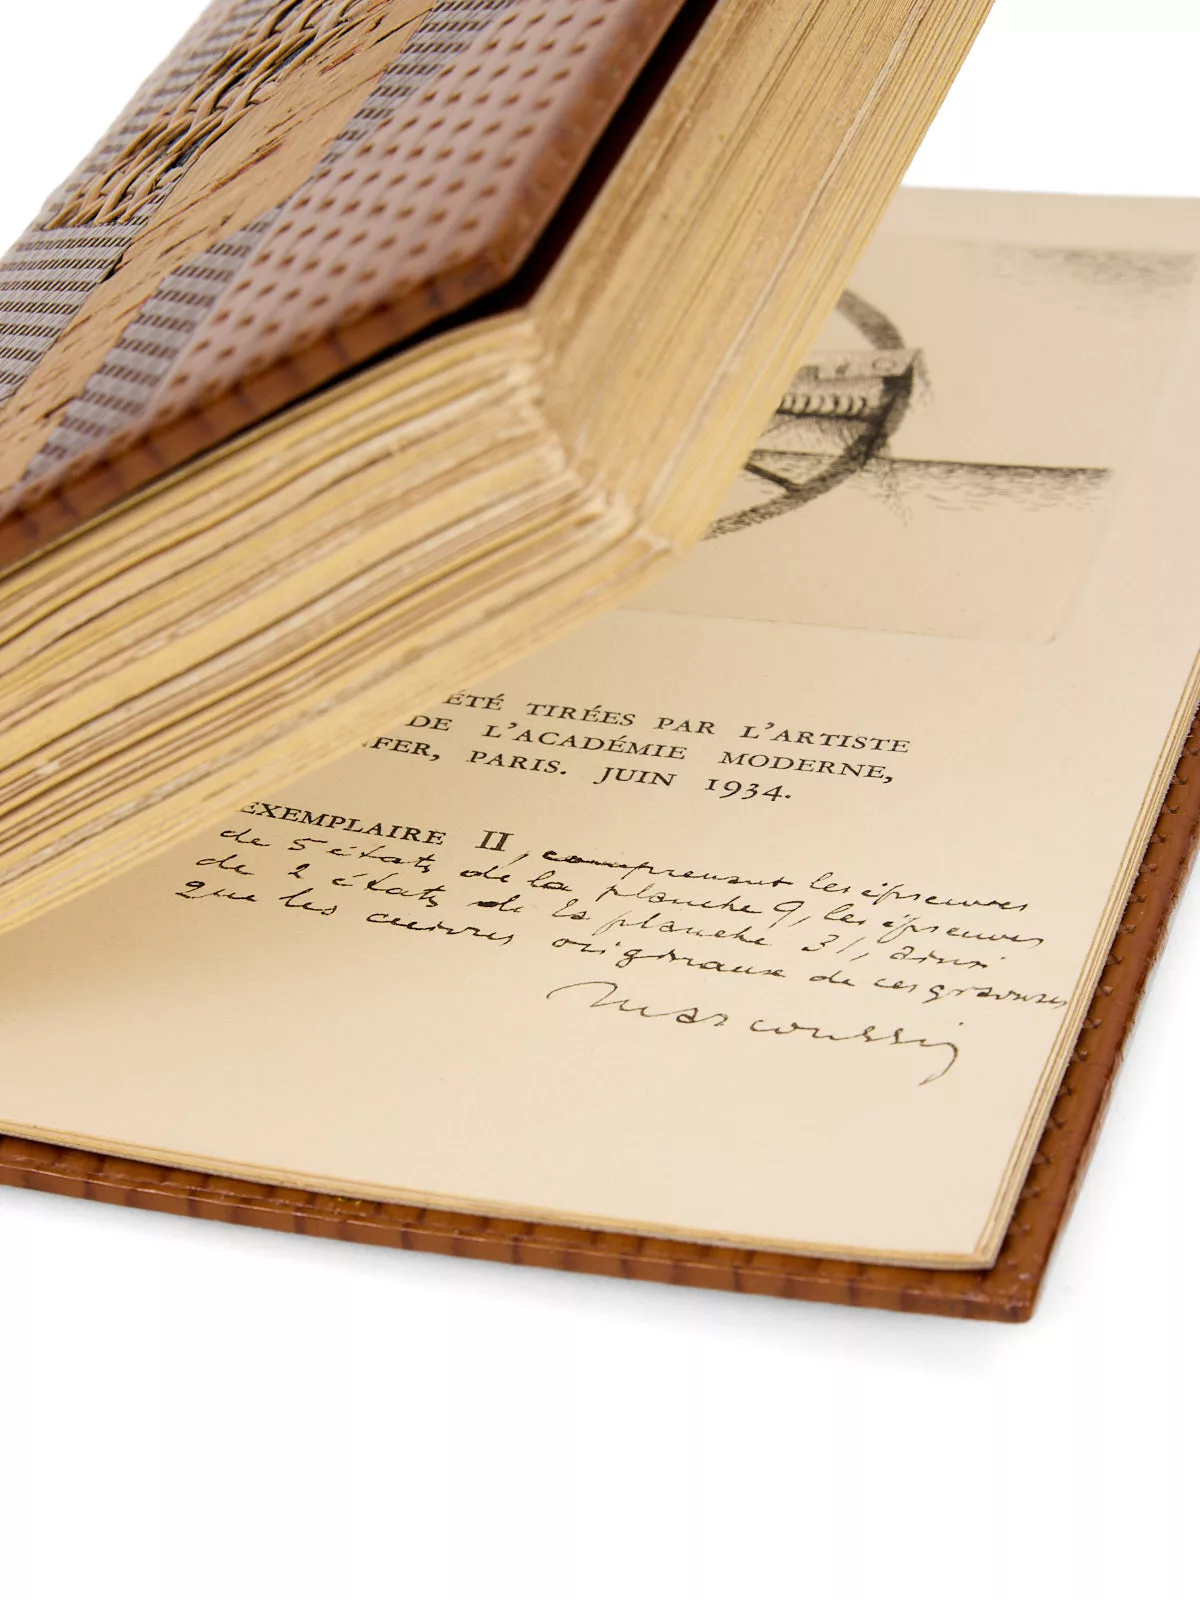 ÉTÉ TIRÉES PAR L'ARTISTE
DE L'ACADÉMIE MODERNE,
FER, PARIS. JUIN 1934.
EXEMPLAIRE II, comprenant les épreuves
de 5 états de la planche 9, les épreuves
de 2 états de la planche 31, ainsi
que les cuivres originaux de ces gravures
Marcoussis